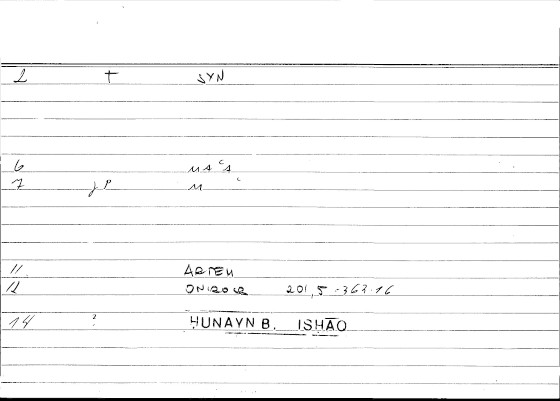 2 + SYN
6 MAʿA
7 JP M ʿ
11 ARTEM
12 ONIROCR 201,5-363.16
14 ? HUNAYN B. ISHĀQ